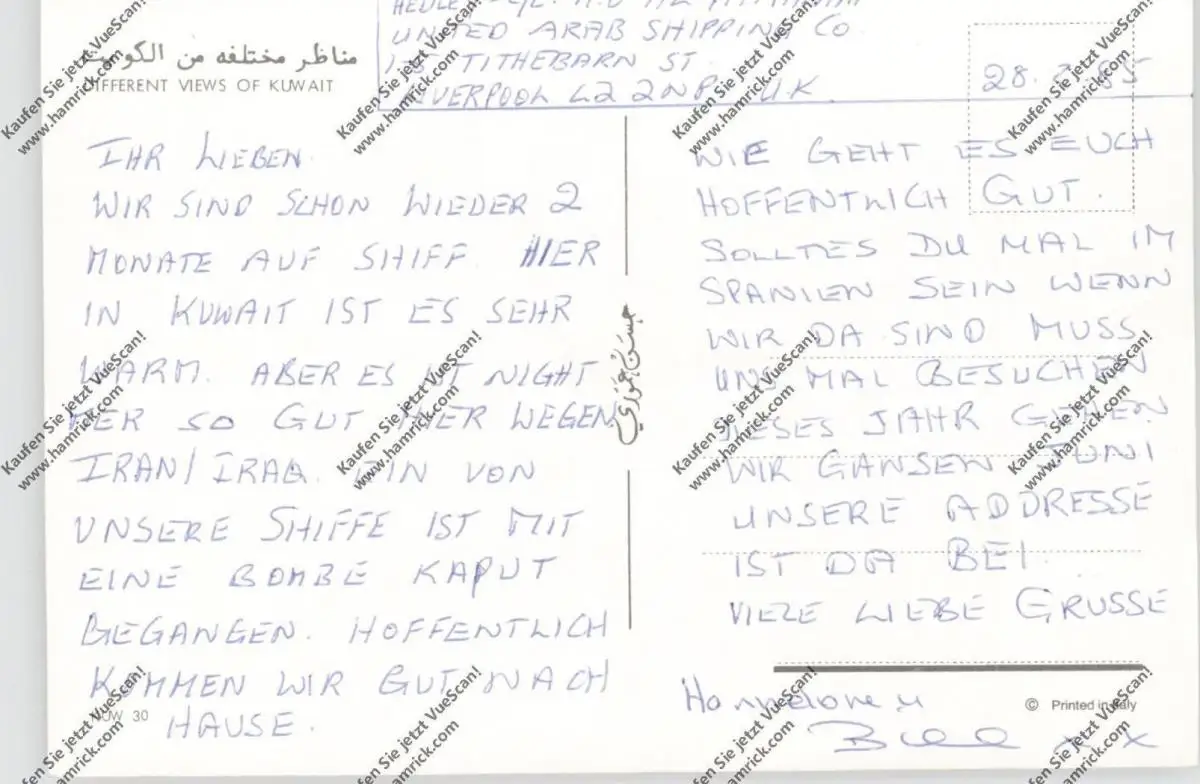 UNITED ARAB SHIPPING CO
TITHEBARN ST.
LIVERPOOL L2 2NP. U.K.
مناظر مختلفه من الكويت
DIFFERENT VIEWS OF KUWAIT
28. 85
IHR LIEBEN.
WIR SIND SCHON WIEDER 2
MONATE AUF SHIFF. HIER
IN KUWAIT IST ES SEHR
WARM. ABER ES IST NIGHT
MER SO GUT HIER WEGEN
IRAN/IRAQ. EIN VON
UNSERE SHIFFE IST MIT
EINE BOMBE KAPUT
GEGANGEN. HOFFENTLICH
KOMMEN WIR GUT NACH
HAUSE.
WIE GEHT ES EUCH
HOFFENTLICH GUT.
SOLLTES DU MAL IM
SPANIEN SEIN WENN
WIR DA SIND MUSS
UNS MAL BESUCHEN
DIESES JAHR GEHEN
WIR GANSEN JUNI
UNSERE ADDRESSE
IST DA BEI.
VIELE LIEBE GRUSSE
Hannelore u
Bill x x
KUW 30
© Printed in Italy
Kaufen Sie jetzt VueScan!
www.hamrick.com